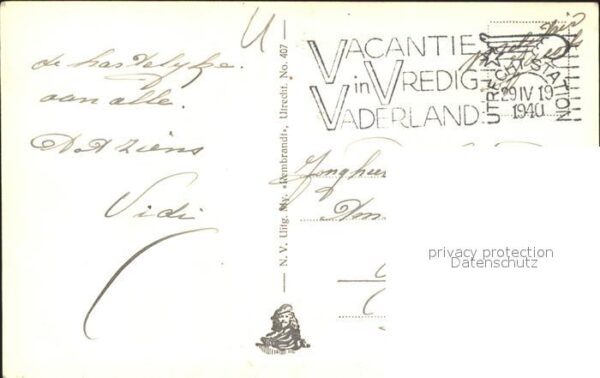 U
de hartelyke
aan alle.
D.A Ziens
Vidi
N. V. Uitg. My. «Rembrandt», Utrecht. No. 407
VACANTIE
in VREDIG
VADERLAND
UTRECHT STATION
29 IV 19
1940
Jonghee
Am
privacy protection
Datenschutz